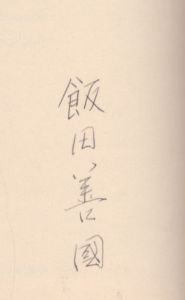 飯田善國